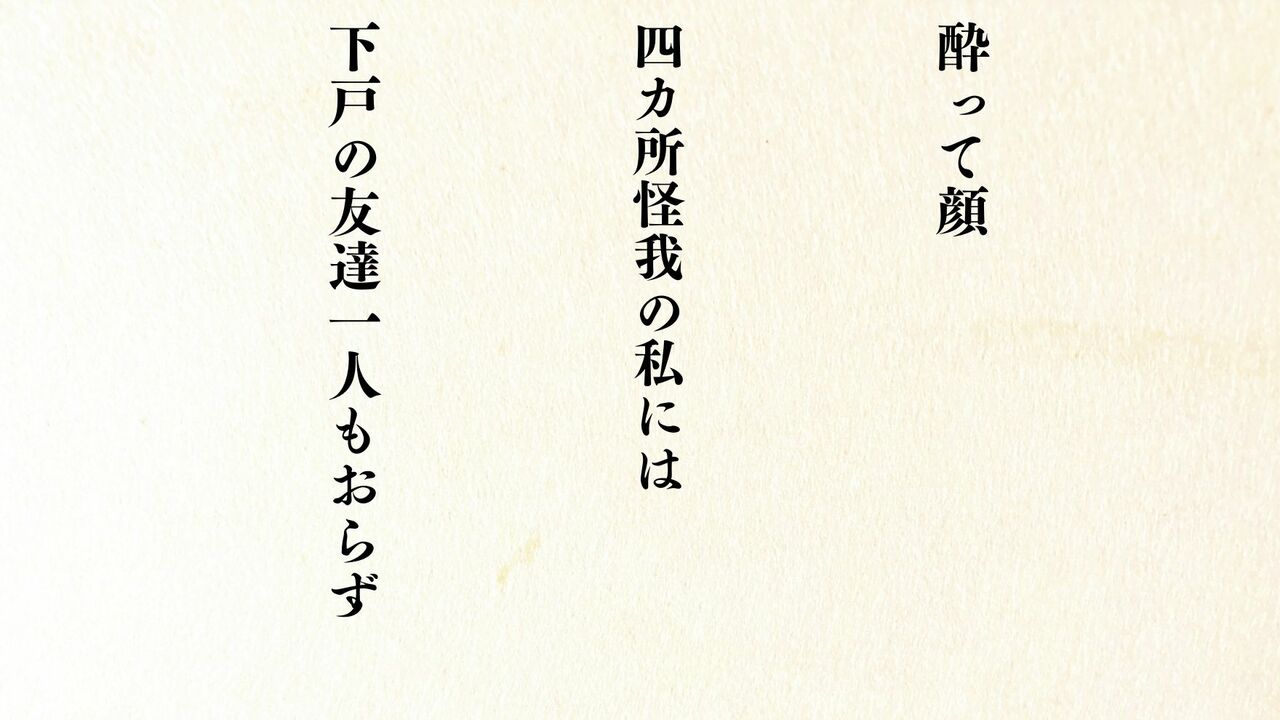 酔って顔
四カ所怪我の私には
下戸の友達一人もおらず